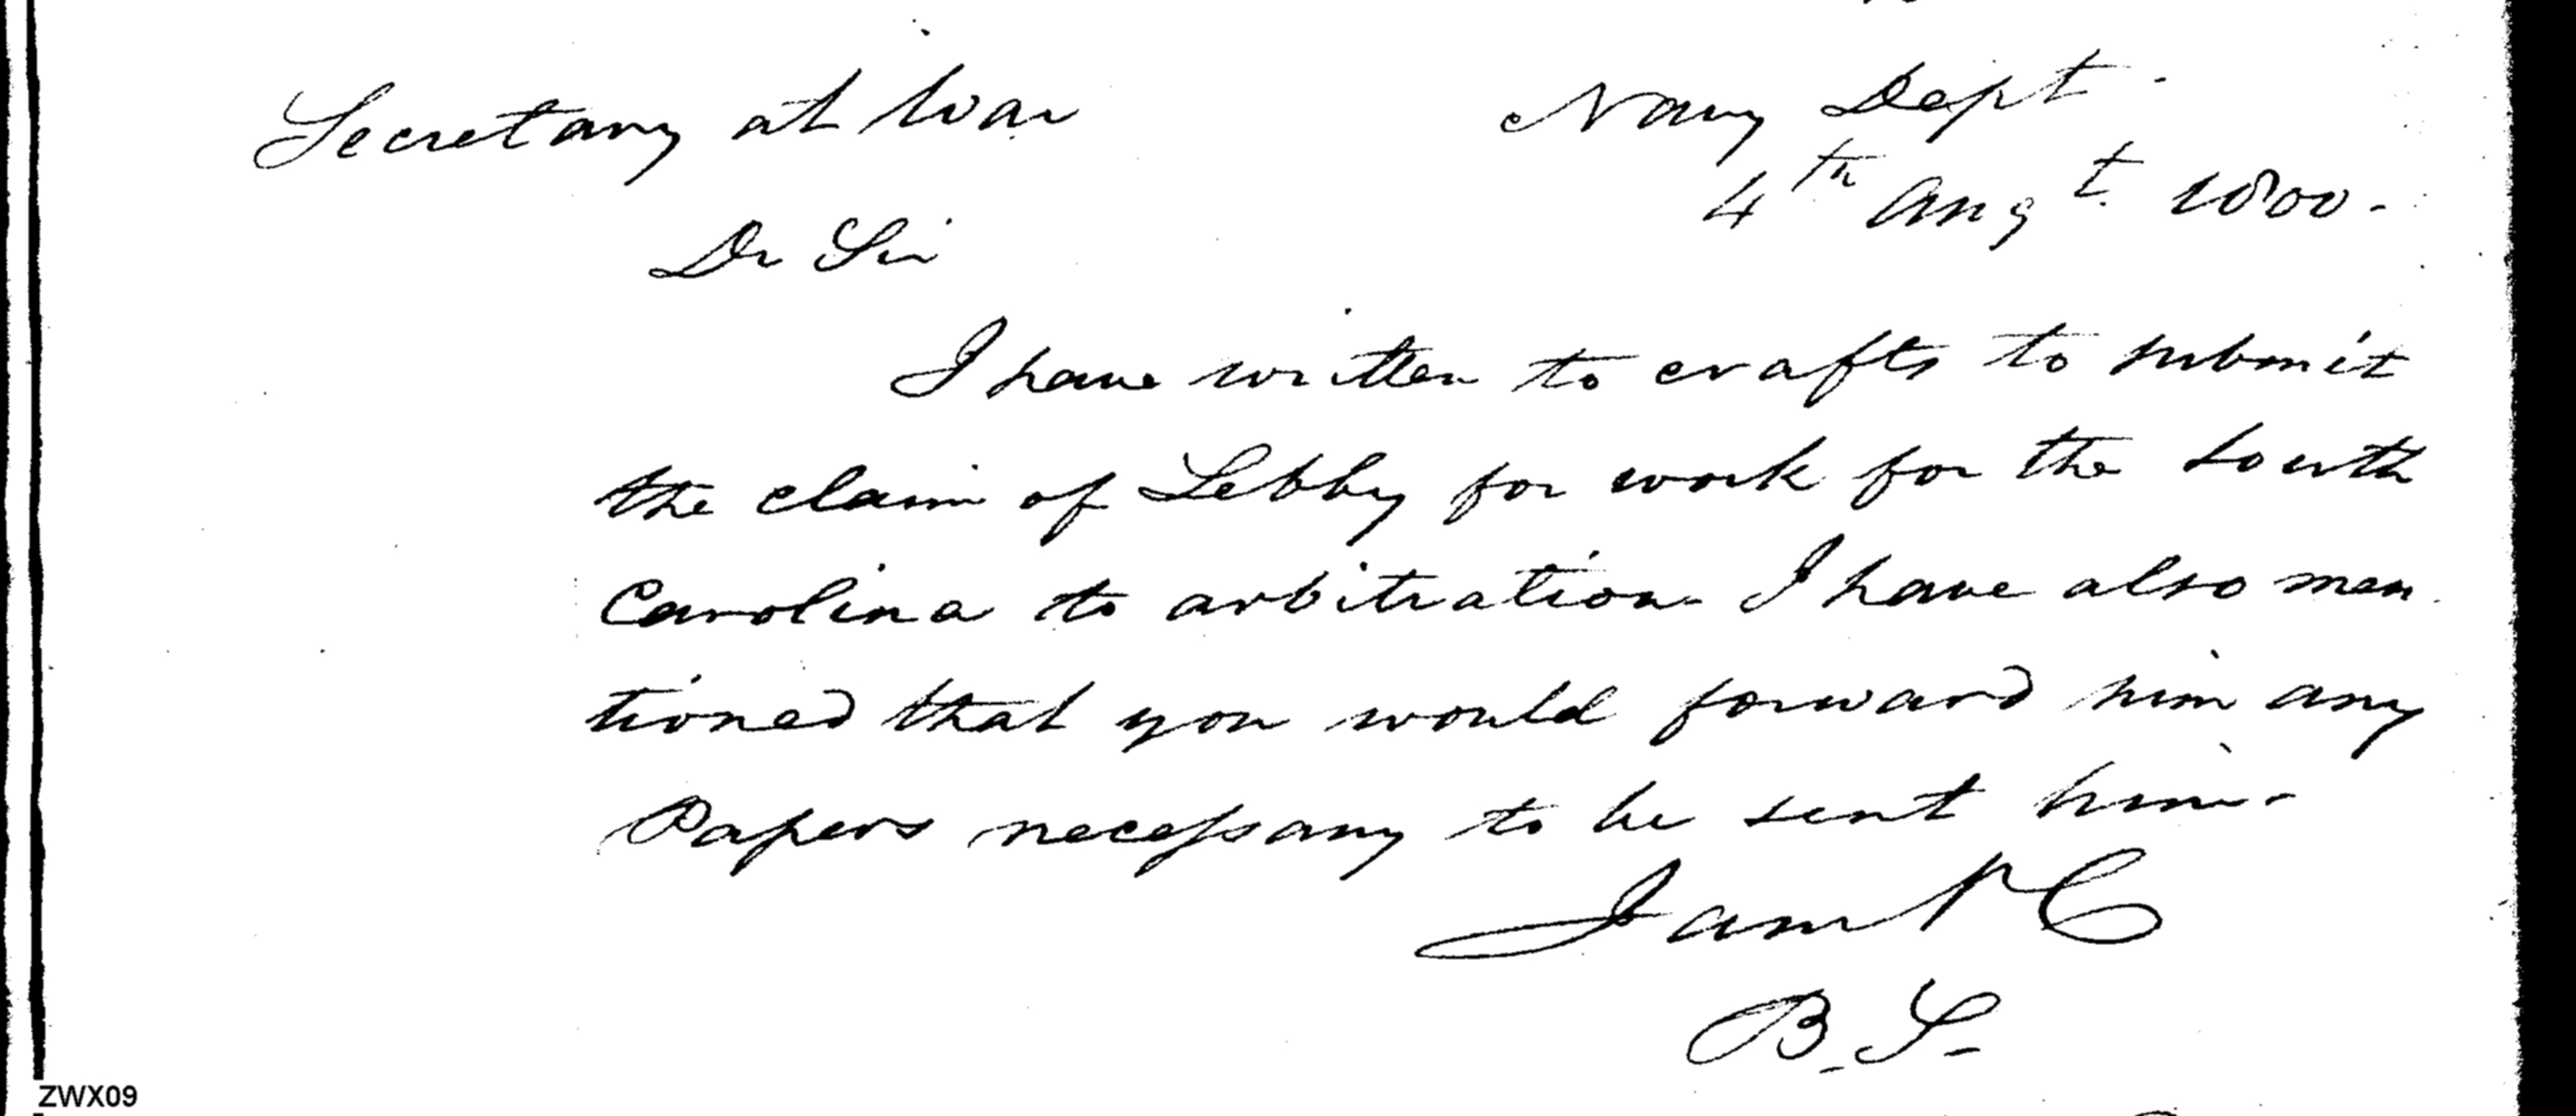 Secretary at War
Navy Dept.
4th Augt. 1800.
Dr Sir
I have written to crafts to submit
the claim of Lebby for work for the South
Carolina to arbitration I have also men
tioned that you would forward him any
Papers necessary to be sent him.
I am &C
B. S.
ZWX09